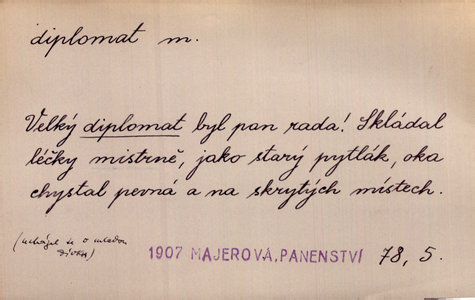 diplomat m.
Velký diplomat byl pan rada! Skládal
léčky mistrně, jako starý pytlák, oka
chystal pevná a na skrytých místech.
(ucházel se o mladou
dívku)
1907 MAJEROVÁ, PANENSTVÍ 78, 5.